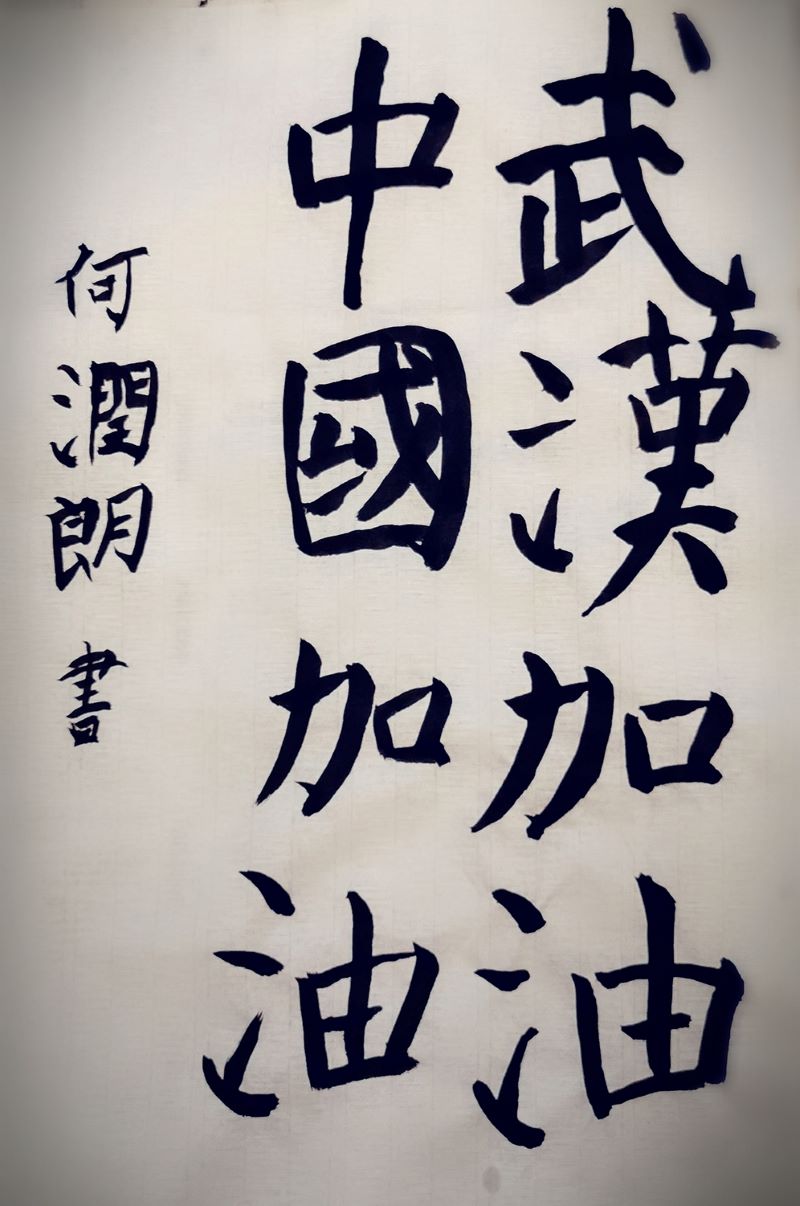 武漢加油
中國加油
何潤朗 書